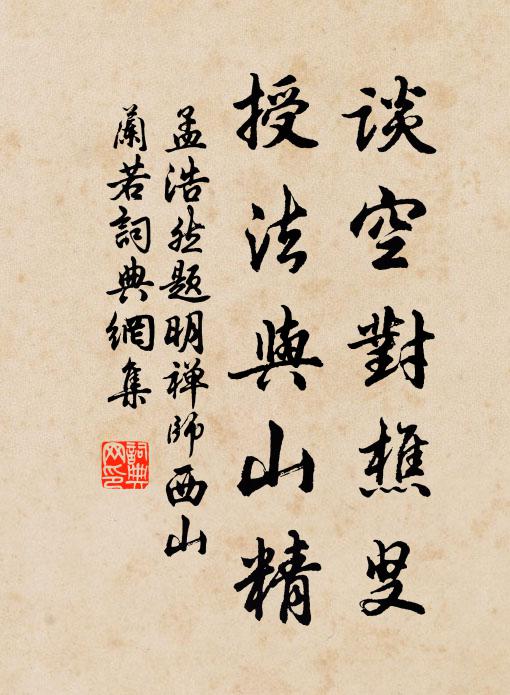 談空對樵叟
授法與山精
孟浩然題明禅師西山
蘭若詞典網集
詞典网印